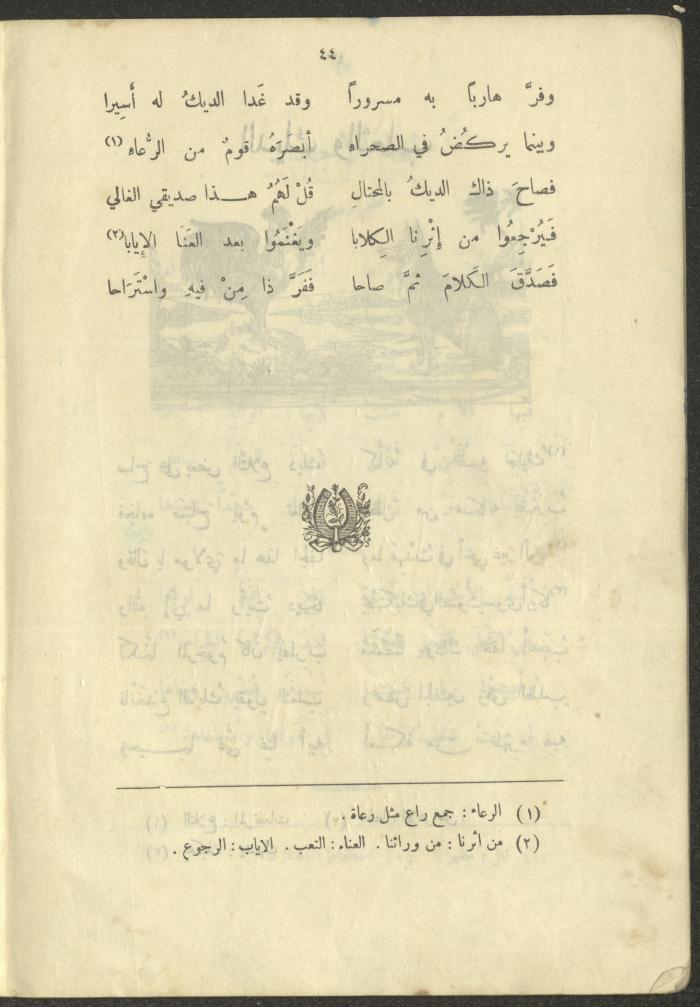 ٤٤
وفرَّ هارباً به مسروراً وقد غَدا الديكُ له أَسِيرا
وبينما يركُضُ في الصحراءِ أبصَرَهُ قومٌ من الرُّعاءِ (١)
فصاحَ ذاك الديكُ بالمحتالِ قُلْ لَهُمُ هـذا صديقي الغالي
فَيُرْجِعُوا من إِثْرِنا الكِلابا ويَغْنَمُوا بعد العَنَا الإِيابا (٢)
فَصَدَّقَ الكَلامَ ثمَّ صاحا فَفَرَّ ذا مِنْ فيهِ واسْتَرَاحا
(١) الرعاء : جمع راع مثل رعاة .
(٢) من أثرنا : من ورائنا . العناء : التعب . الاياب : الرجوع .